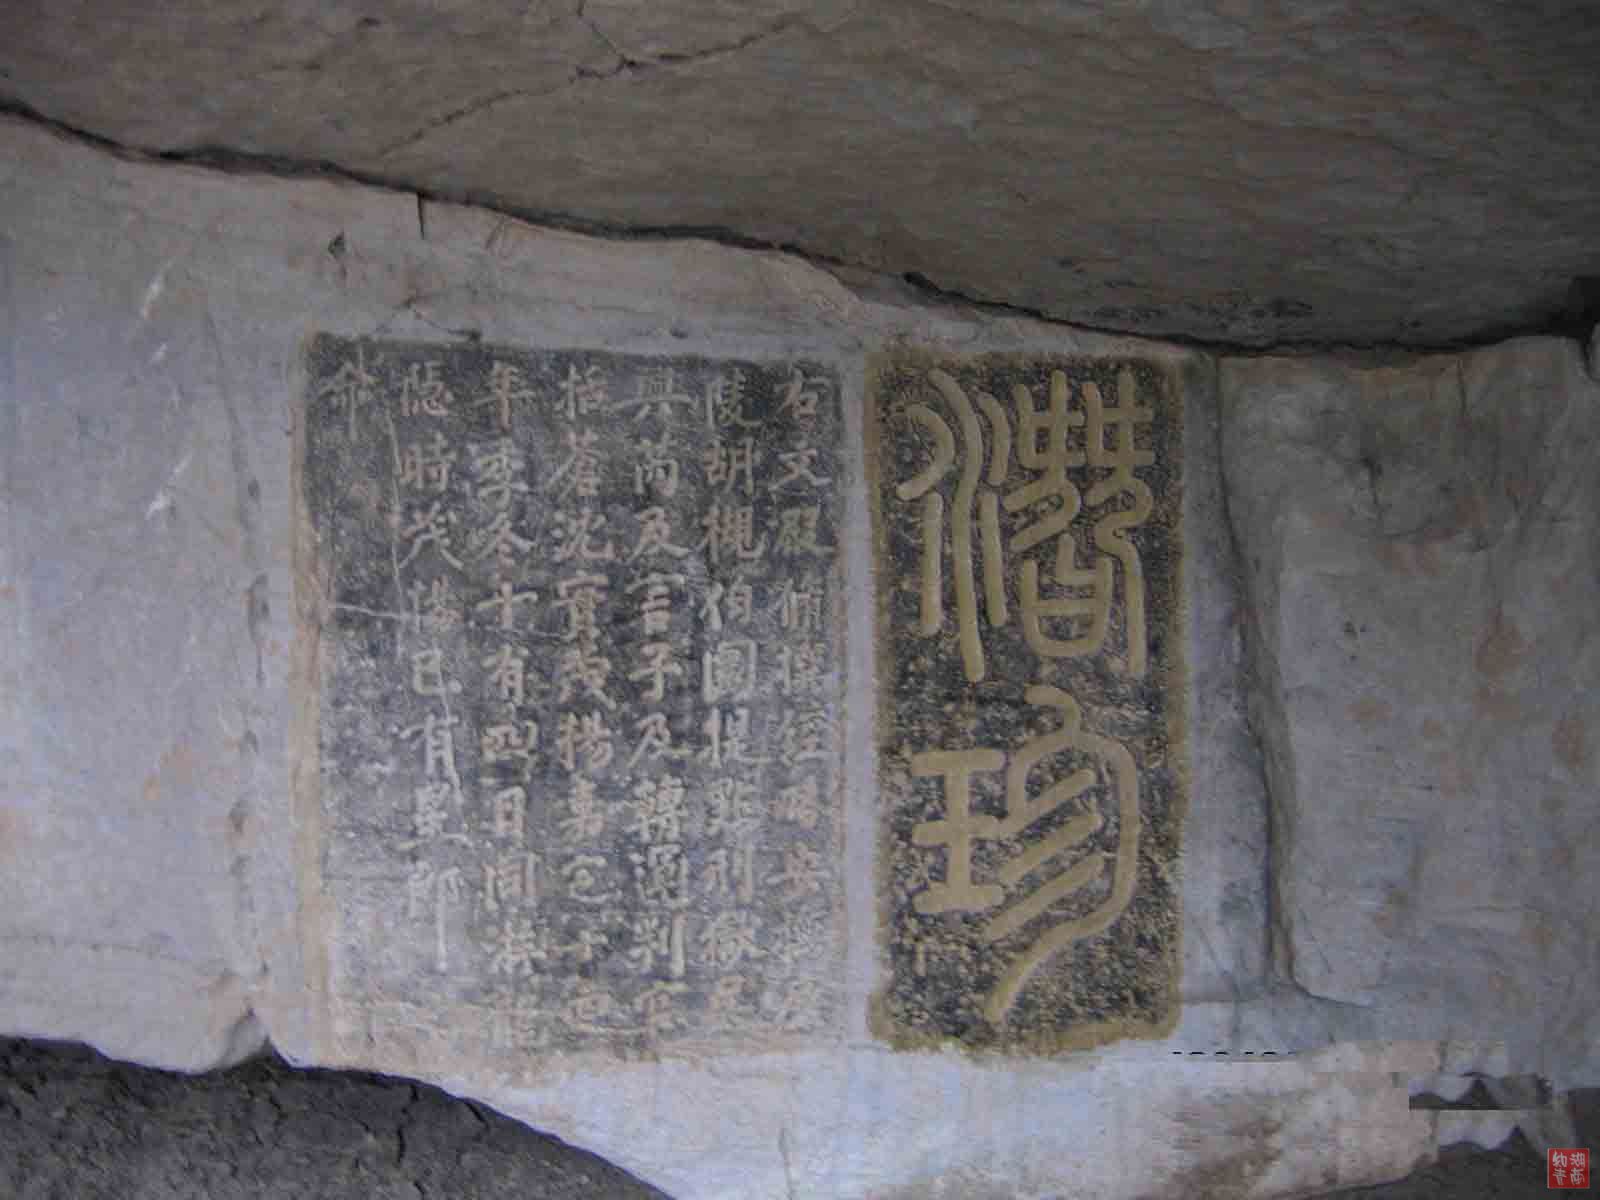 潛珍
右文殿修撰經略安撫廣
陵胡槻伯圜提點刑獄吳
興芮及言子及轉運判官
括蒼沈實茂揚嘉定十四
年季冬十有四日同游龍
隱時茂揚已有郎
命